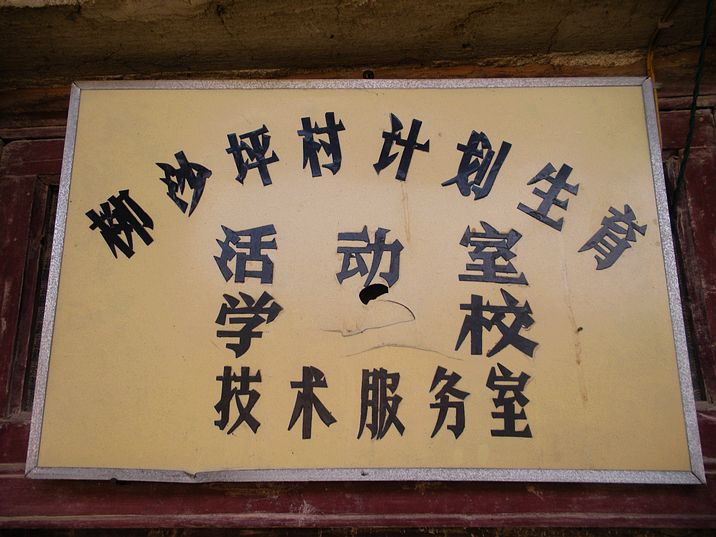 柳沙坪村计划生育
活动室
学校
技术服务室